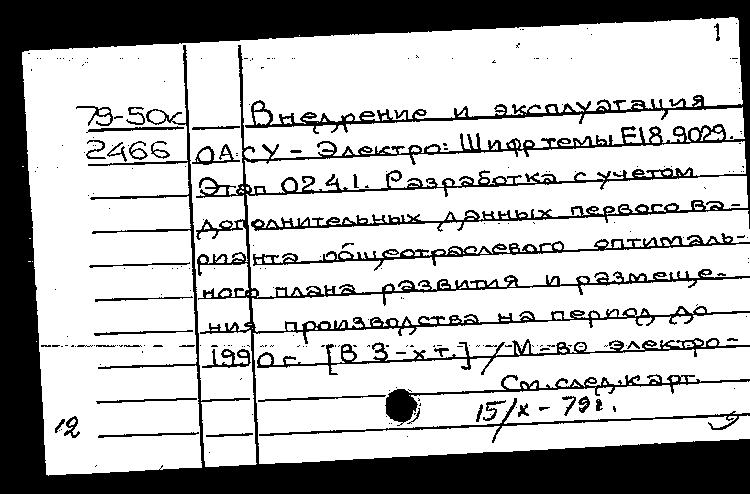 1
79-50к Внедрение и эксплуатация
2466 ОАСУ - Электро: Шифр темы Е18.9029.
Этап 02.4.1. Разработка с учетом
дополнительных данных первого ва-
рианта общеотраслевого оптималь-
ного плана развития и размеще-
ния производства на период до
1990 г. [В 3-х т.] / М-во электро-
См. след. карт.
15/X - 79г.
12